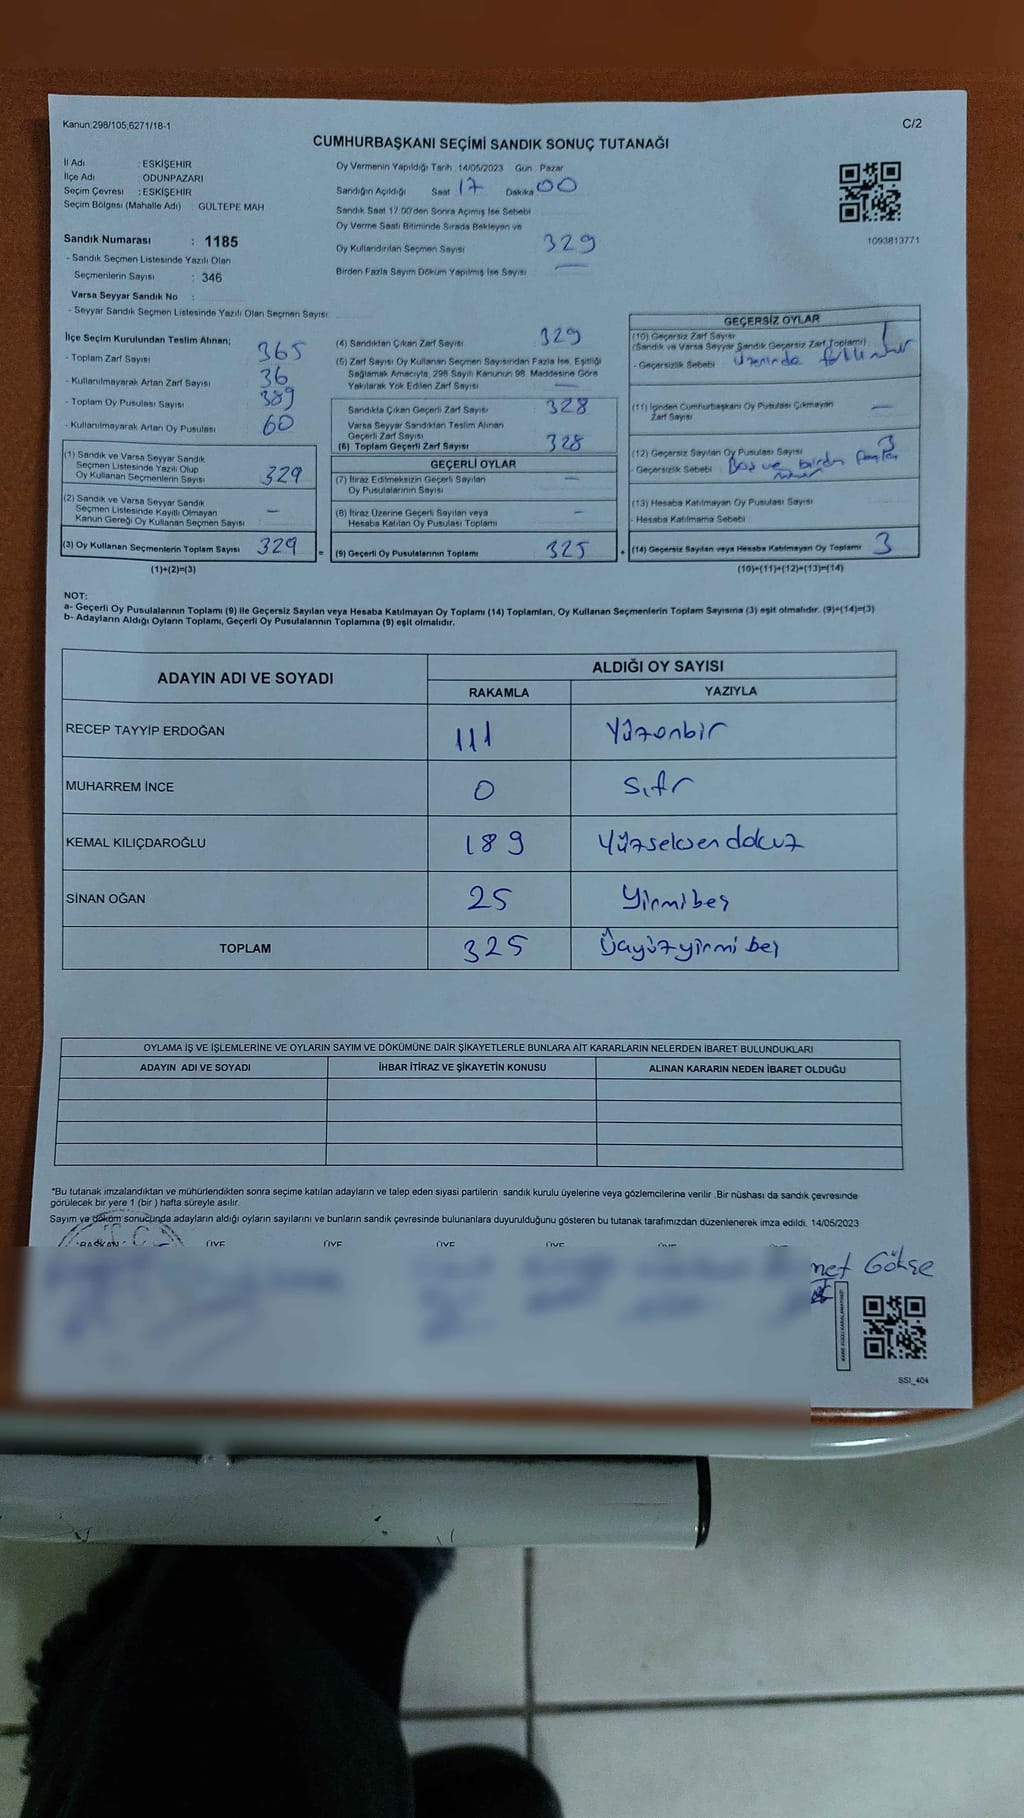 Kanun:298/105,6271/18-1
C/2
CUMHURBAŞKANI SEÇİMİ SANDIK SONUÇ TUTANAĞI
İl Adı : ESKİŞEHİR
İlçe Adı : ODUNPAZARI
Seçim Çevresi : ESKİŞEHİR
Seçim Bölgesi (Mahalle Adı) : GÜLTEPE MAH
Sandık Numarası : 1185
- Sandık Seçmen Listesinde Yazılı Olan
Seçmenlerin Sayısı : 346
Varsa Seyyar Sandık No :
- Seyyar Sandık Seçmen Listesinde Yazılı Olan Seçmen Sayısı:
Oy Vermenin Yapıldığı Tarih 14/05/2023 Gün Pazar
Sandığın Açıldığı Saat 17 Dakika 00
Sandık Saat 17.00'den Sonra Açılmış İse Sebebi
Oy Verme Saati Bitiminde Sırada Bekleyen ve
Oy Kullandırılan Seçmen Sayısı 329
Birden Fazla Sayım Döküm Yapılmış İse Sayısı —
1093813771
İlçe Seçim Kurulundan Teslim Alınan;
- Toplam Zarf Sayısı 365
- Kullanılmayarak Artan Zarf Sayısı 36
- Toplam Oy Pusulası Sayısı 389
- Kullanılmayarak Artan Oy Pusulası 60
(1) Sandık ve Varsa Seyyar Sandık
Seçmen Listesinde Yazılı Olup
Oy Kullanan Seçmenlerin Sayısı 329
(2) Sandık ve Varsa Seyyar Sandık
Seçmen Listesinde Kayıtlı Olmayan
Kanun Gereği Oy Kullanan Seçmen Sayısı —
(3) Oy Kullanan Seçmenlerin Toplam Sayısı 329 =
(1)+(2)=(3)
(4) Sandıktan Çıkan Zarf Sayısı 329
(5) Zarf Sayısı Oy Kullanan Seçmen Sayısından Fazla İse, Eşitliği
Sağlamak Amacıyla, 298 Sayılı Kanunun 98. Maddesine Göre
Yakılarak Yok Edilen Zarf Sayısı —
Sandıkta Çıkan Geçerli Zarf Sayısı 328
Varsa Seyyar Sandıktan Teslim Alınan
Geçerli Zarf Sayısı
(6) Toplam Geçerli Zarf Sayısı 328
GEÇERLİ OYLAR
(7) İtiraz Edilmeksizin Geçerli Sayılan
Oy Pusulalarının Sayısı —
(8) İtiraz Üzerine Geçerli Sayılan veya
Hesaba Katılan Oy Pusulası Toplamı —
(9) Geçerli Oy Pusulalarının Toplamı 325 +
GEÇERSİZ OYLAR
(10) Geçersiz Zarf Sayısı
(Sandık ve Varsa Seyyar Sandık Geçersiz Zarf Toplamı) 1
- Geçersizlik Sebebi : Üzerinde
(11) İçinden Cumhurbaşkanı Oy Pusulası Çıkmayan
Zarf Sayısı —
(12) Geçersiz Sayılan Oy Pusulası Sayısı 3
- Geçersizlik Sebebi : Boş ve birden fazla
(13) Hesaba Katılmayan Oy Pusulası Sayısı
- Hesaba Katılmama Sebebi
(14) Geçersiz Sayılan veya Hesaba Katılmayan Oy Toplamı 3
(10)+(11)+(12)+(13)=(14)
NOT:
a- Geçerli Oy Pusulalarının Toplamı (9) ile Geçersiz Sayılan veya Hesaba Katılmayan Oy Toplamı (14) Toplamları, Oy Kullanan Seçmenlerin Toplam Sayısına (3) eşit olmalıdır. (9)+(14)=(3)
b- Adayların Aldığı Oyların Toplamı, Geçerli Oy Pusulalarının Toplamına (9) eşit olmalıdır.
ADAYIN ADI VE SOYADI
ALDIĞI OY SAYISI
RAKAMLA YAZIYLA
RECEP TAYYİP ERDOĞAN 111 Yüzonbir
MUHARREM İNCE 0 Sıfır
KEMAL KILIÇDAROĞLU 189 Yüzseksen dokuz
SİNAN OĞAN 25 Yirmibeş
TOPLAM 325 Üçyüzyirmi beş
OYLAMA İŞ VE İŞLEMLERİNE VE OYLARIN SAYIM VE DÖKÜMÜNE DAİR ŞİKAYETLERLE BUNLARA AİT KARARLARIN NELERDEN İBARET BULUNDUKLARI
ADAYIN ADI VE SOYADI İHBAR İTİRAZ VE ŞİKAYETİN KONUSU ALINAN KARARIN NEDEN İBARET OLDUĞU
*Bu tutanak imzalandıktan ve mühürlendikten sonra seçime katılan adayların ve talep eden siyasi partilerin sandık kurulu üyelerine veya gözlemcilerine verilir .Bir nüshası da sandık çevresinde
görülecek bir yere 1 (bir ) hafta süreyle asılır.
Sayım ve döküm sonucunda adayların aldığı oyların sayılarını ve bunların sandık çevresinde bulunanlara duyurulduğunu gösteren bu tutanak tarafımızdan düzenlenerek imza edildi. 14/05/2023
T.C.
BAŞKAN ÜYE ÜYE ÜYE ÜYE ÜYE ÜYE
met Gökçe
SSI_404